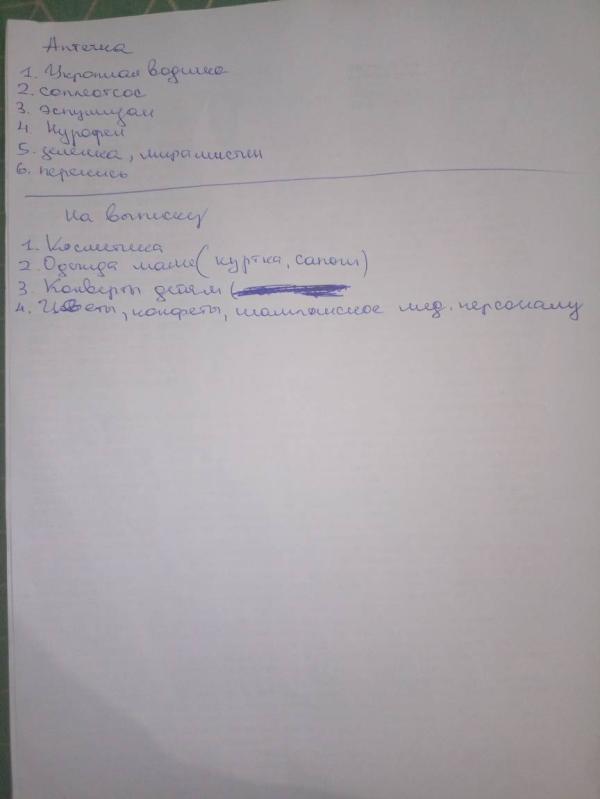 Аптечка
1. Укропная водичка
2. соплеотсос
3. эспумизан
4. Нурофен
5. зеленка, мирамистин
6. перекись
На выписку
1. Косметика
2. Одежда маме (куртка, сапоги)
3. Конверты детям (
4. Цветы, конфеты, шампанское мед. персоналу